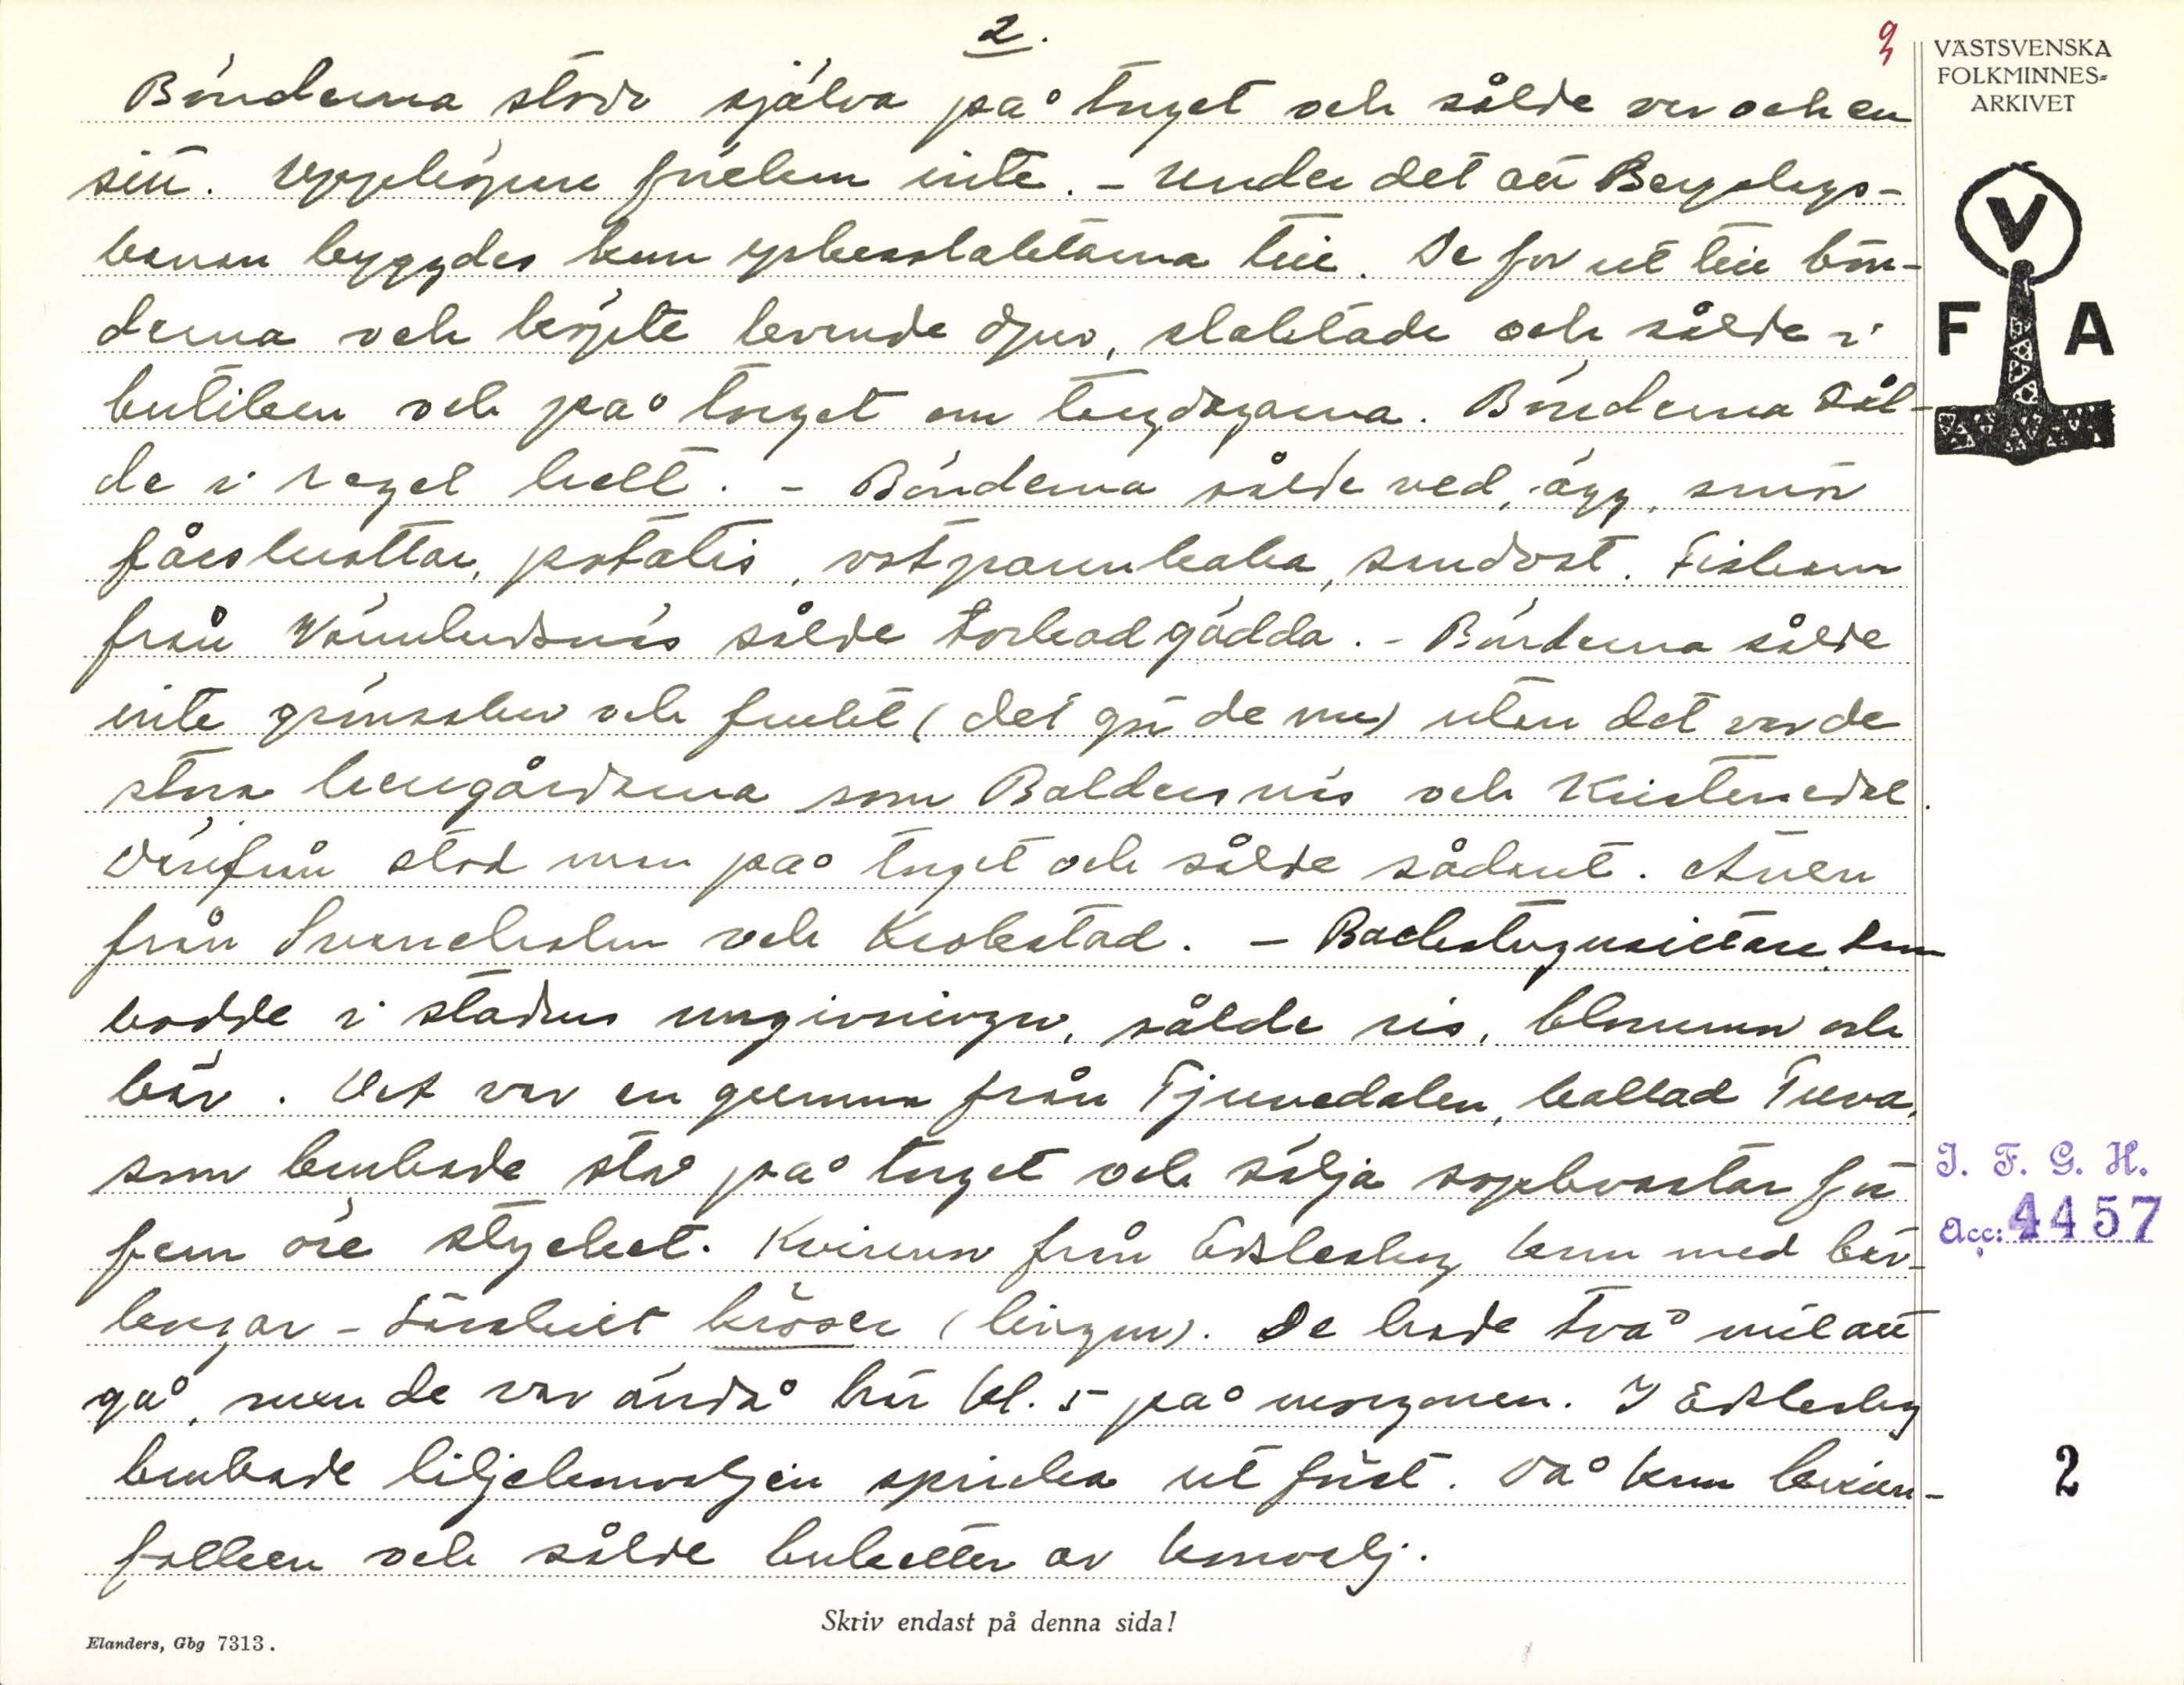 2.
9
VÄSTSVENSKA
FOLKMINNES-
ARKIVET
V
F A
Bönderna stodo själva på torget och sålde var och en
sitt. Uppköpare förekom inte. - Under det att Bergslags-
banan byggdes kom yrkesslaktarna till. De for ut till bön-
derna och köpte levande djur, slaktade och sålde i
butiken och på torget om torgdagarna. Bönderna sål-
de i regel helt. - Bönderna sålde ved, ägg, smör
fårbuottar, potatis, ostpannkaka, sundost. Fiskare
från Värmlandsnäs sålde torkad gädda. - Bönderna sålde
inte grönsaker och frukt (det gör de nu) utan det var de
stora herrgårdarna som Baldersnäs och Kristinedal.
Därifrån stod man på torget och sålde sådant. Även
från Svaneholm och Krokstad. - Backstugusittare som
bodde i stadens omgivningar, sålde ris, blommor och
bär. Det var en gumma från Tjuvadalen, kallad Tuva,
som brukade stå på torget och sälja sopkvastar för
fem öre stycket. Kvinnor från Edsleskog kom med bär-
korgar - särskilt kröser (lingon). De hade två mil att
gå, men de var ändå här kl. 5 på morgonen. I Edsleskog
brukade liljekonvaljen spricka ut först. Då kom kvinn-
folken och sålde buketter av konvalj.
I. F. G. H.
Acc: 4457
2
Skriv endast på denna sida!
Elanders, Gbg 7313.